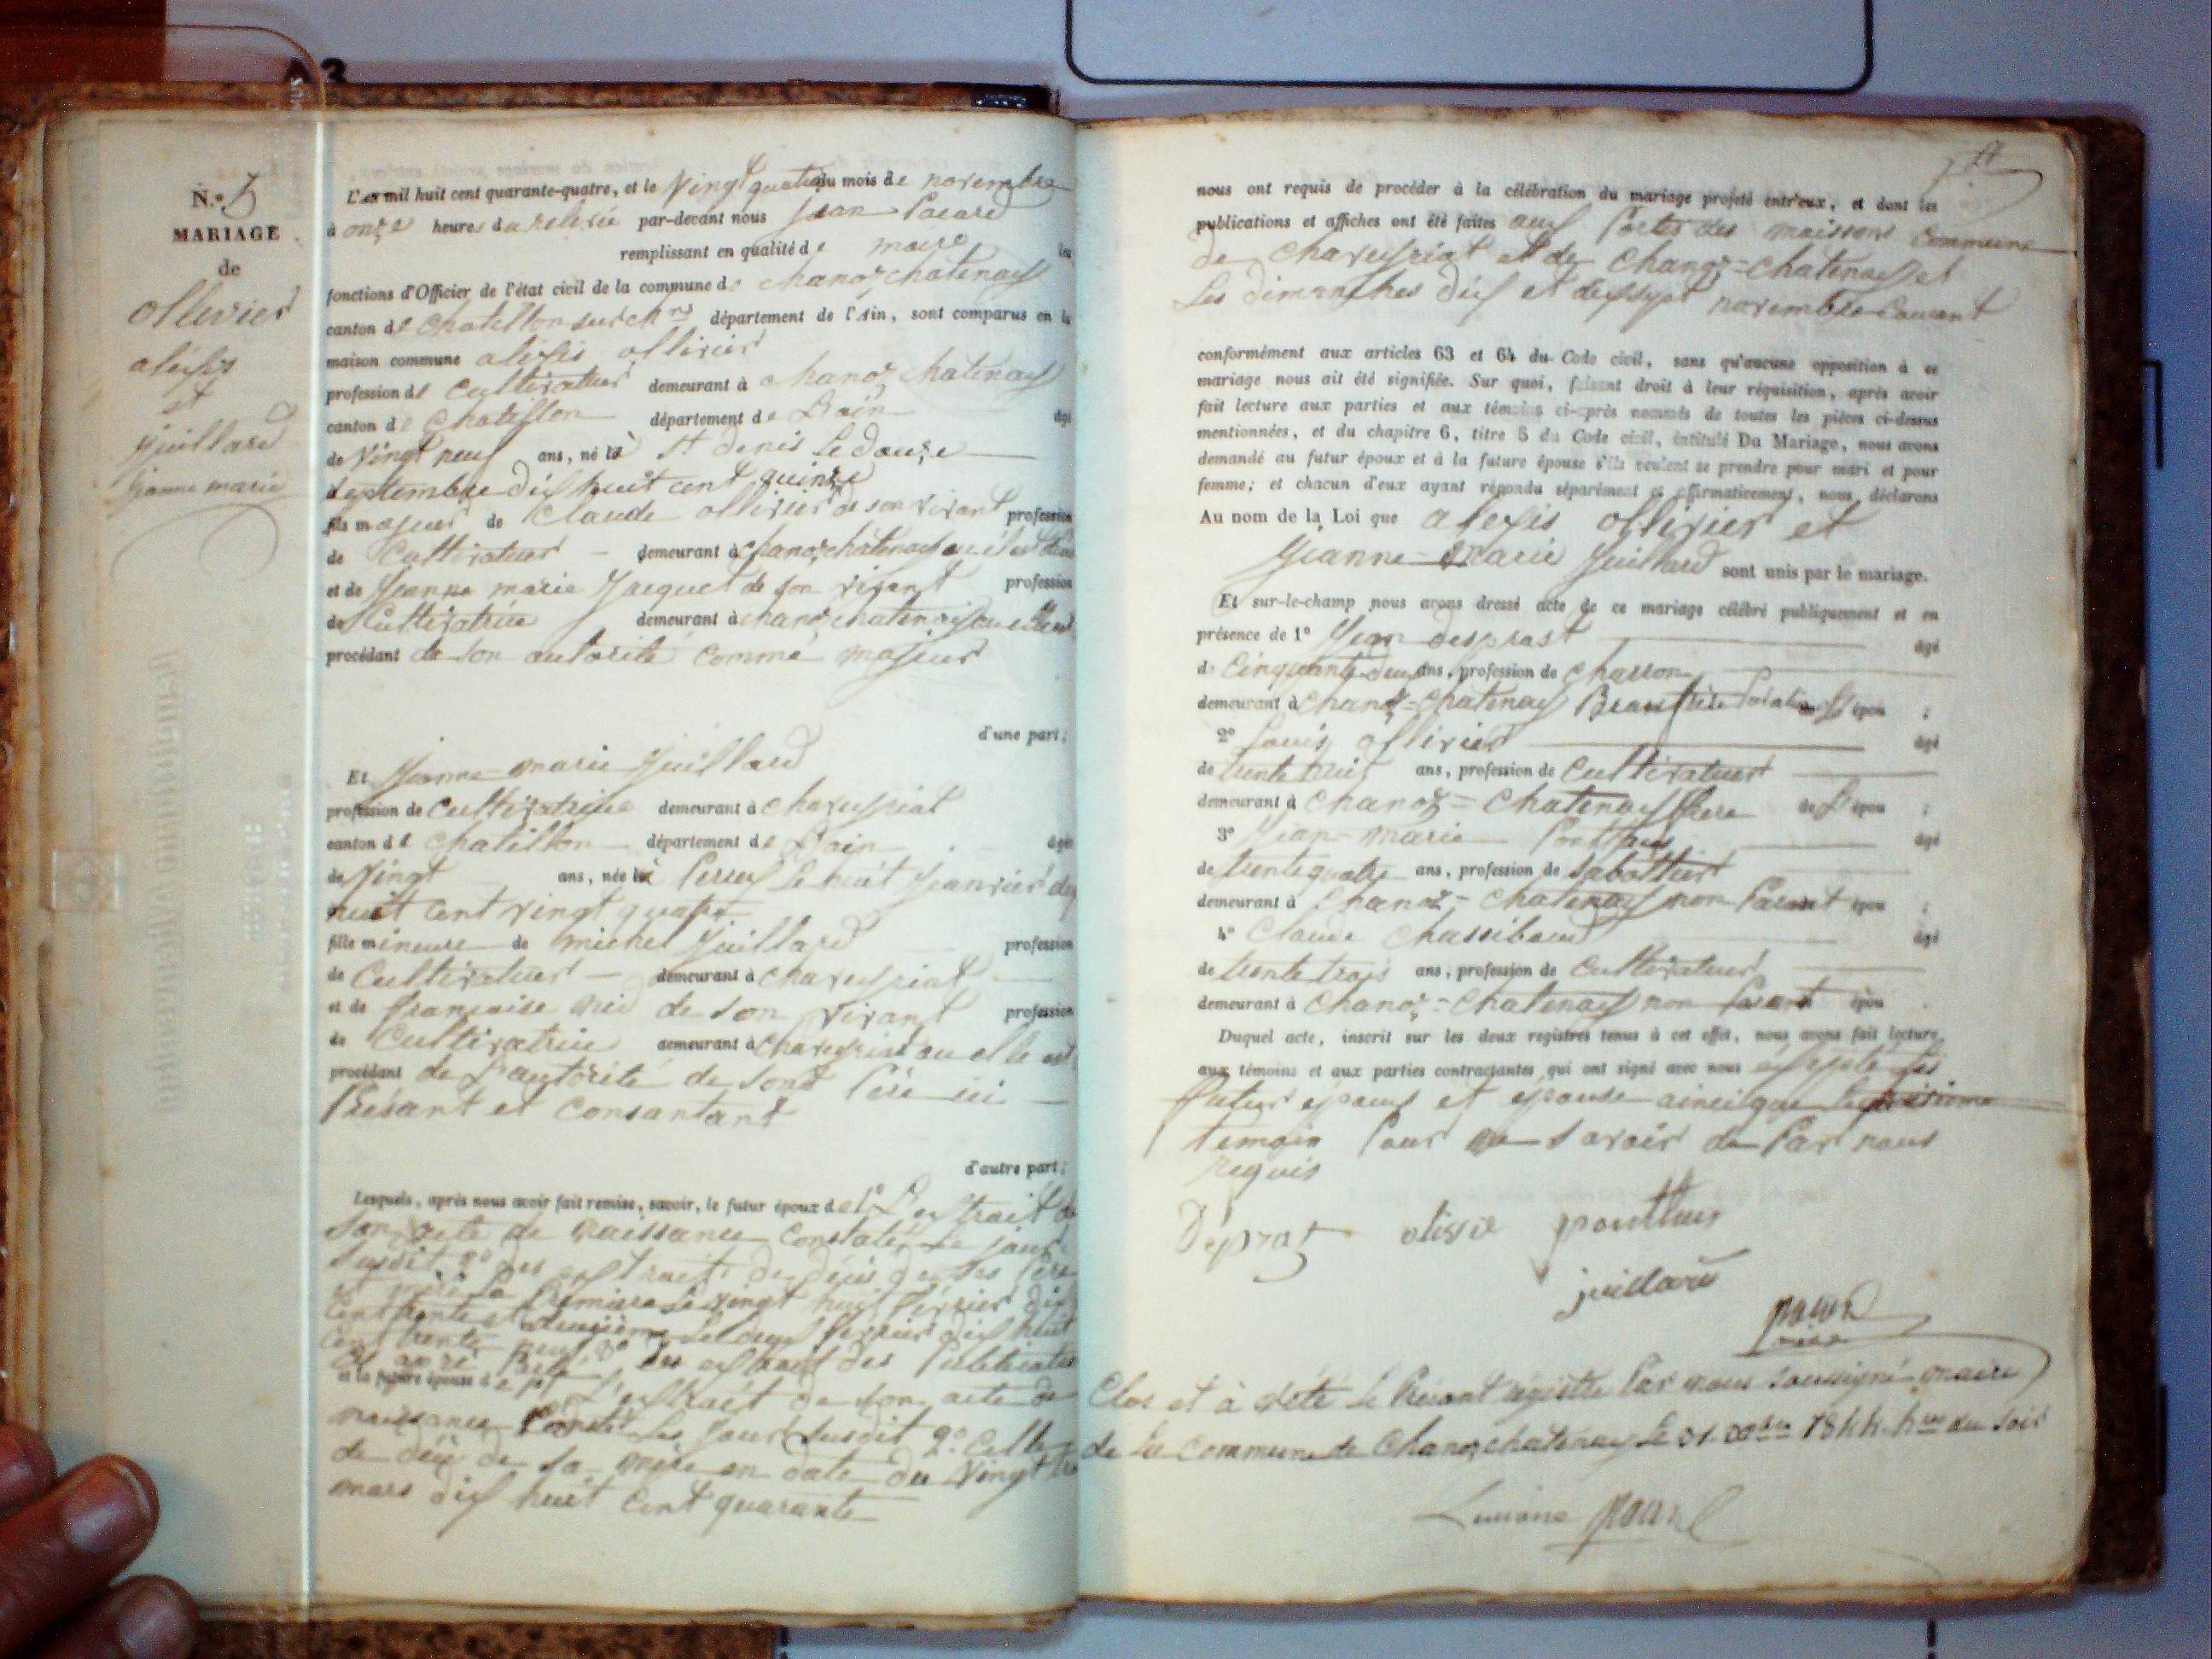 N.°
MARIAGE
de
ollivier
alexis
et
juillard
jeanne marie
L'an mil huit cent quarante-quatre, et le Vingt quatre du mois de novembre
à onze heures du relevée par-devant nous jean Pacard
remplissant en qualité de maire les
fonctions d'Officier de l'état civil de la commune de chanoz chatenay
canton de chatillon sur ch.ne département de l'Ain, sont comparus en la
maison commune alexis ollivier
profession de cultivateur demeurant à chanoz chatenay
canton de chatillon département de L'ain âgé
de Vingt neuf ans, né à St denis Le
septembre dix huit cent quinze
fils majeur de Claude ollivier de son vivant profession
de Cultivateur demeurant à chanoz chatenay ou il est
et de jeanne marie jacquet de son vivant profession
de Cultivatrice demeurant à chanoz chatenay ou elle est
procédant de son autorité comme majeur
d'une part;
Et jeanne-marie juillard
profession de cultivatrice demeurant à chaveyriat
canton de chatillon département de L'ain âgée
de Vingt ans, née à Perrex le huit janvier dix
huit cent vingt quatre
fille mineure de michel juillard profession
de Cultivateur demeurant à chaveyriat
et de françoise de son vivant profession
de Cultivatrice demeurant à chaveyriat ou elle est
procédant de L'autorité de sont Père ici
Présant et consantant
d'autre part;
Lesquels, après nous avoir fait remise, savoir, le futur époux de 1° L'extrait de
son acte de naissance constaté le jour
susdit 2° des extraits de décès de ses Père
et mère la Première le vingt huit février dix
cent trente et deuxième Le deux février dix huit
cent trente neuf 3° des extrait des Publications
et la future épouse de L'extrait de son acte de
naissance Constaté Les jour susdit 2° Celle
de décè de sa mère en date du Vingt
mars dix huit cent quarante
nous ont requis de procéder à la célébration du mariage projeté entr'eux, et dont les
publications et affiches ont été faites aux Portes des maisons commune
de chaveyriat et de chanoz-chatenay et
Les dimanches dix et dixsept novembre courant
conformément aux articles 63 et 64 du Code civil, sans qu'aucune opposition à ce
mariage nous ait été signifiée. Sur quoi, faisant droit à leur réquisition, après avoir
fait lecture aux parties et aux témoins ci-après nommés de toutes les pièces ci-dessus
mentionnées, et du chapitre 6, titre 5 du Code civil, intitulé Du Mariage, nous avons
demandé au futur époux et à la future épouse s'ils veulent se prendre pour mari et pour
femme; et chacun d'eux ayant répondu séparément et affirmativement, nous déclarons
Au nom de la Loi que alexis ollivier et
jeanne-marie juillard sont unis par le mariage.
Et sur-le-champ nous avons dressé acte de ce mariage célébré publiquement et en
présence de 1° jean desprast âgé
de Cinquante deux ans, profession de charron
demeurant à chanoz-chatenay Beaufrère de L'époux ;
2° Louis ollivier âgé
de trente huit ans, profession de Cultivateur
demeurant à chanoz-chatenay frère de L'époux ;
3° jean-marie Ponthus âgé
de trente quatre ans, profession de sabottier
demeurant à chanoz-chatenay non Parant époux ;
4° Claude Chassibout âgé
de trente trois ans, profession de Cultivateur
demeurant à chanoz-chatenay non Parant époux .
Duquel acte, inscrit sur les deux registres tenus à cet effet, nous avons fait lecture
aux témoins et aux parties contractantes qui ont signé avec nous excepté les
futur époux et épouse ainci que
temoin Pour ne savoir de Par nous
requis
Déprat olivie ponthus
juillard
pacard
maire
Clos et à rété le Présant régistre Par nous soussigné maire
de La Commune de Chanoz chatenay Le 31 Xbre 1844 du soir
pacard